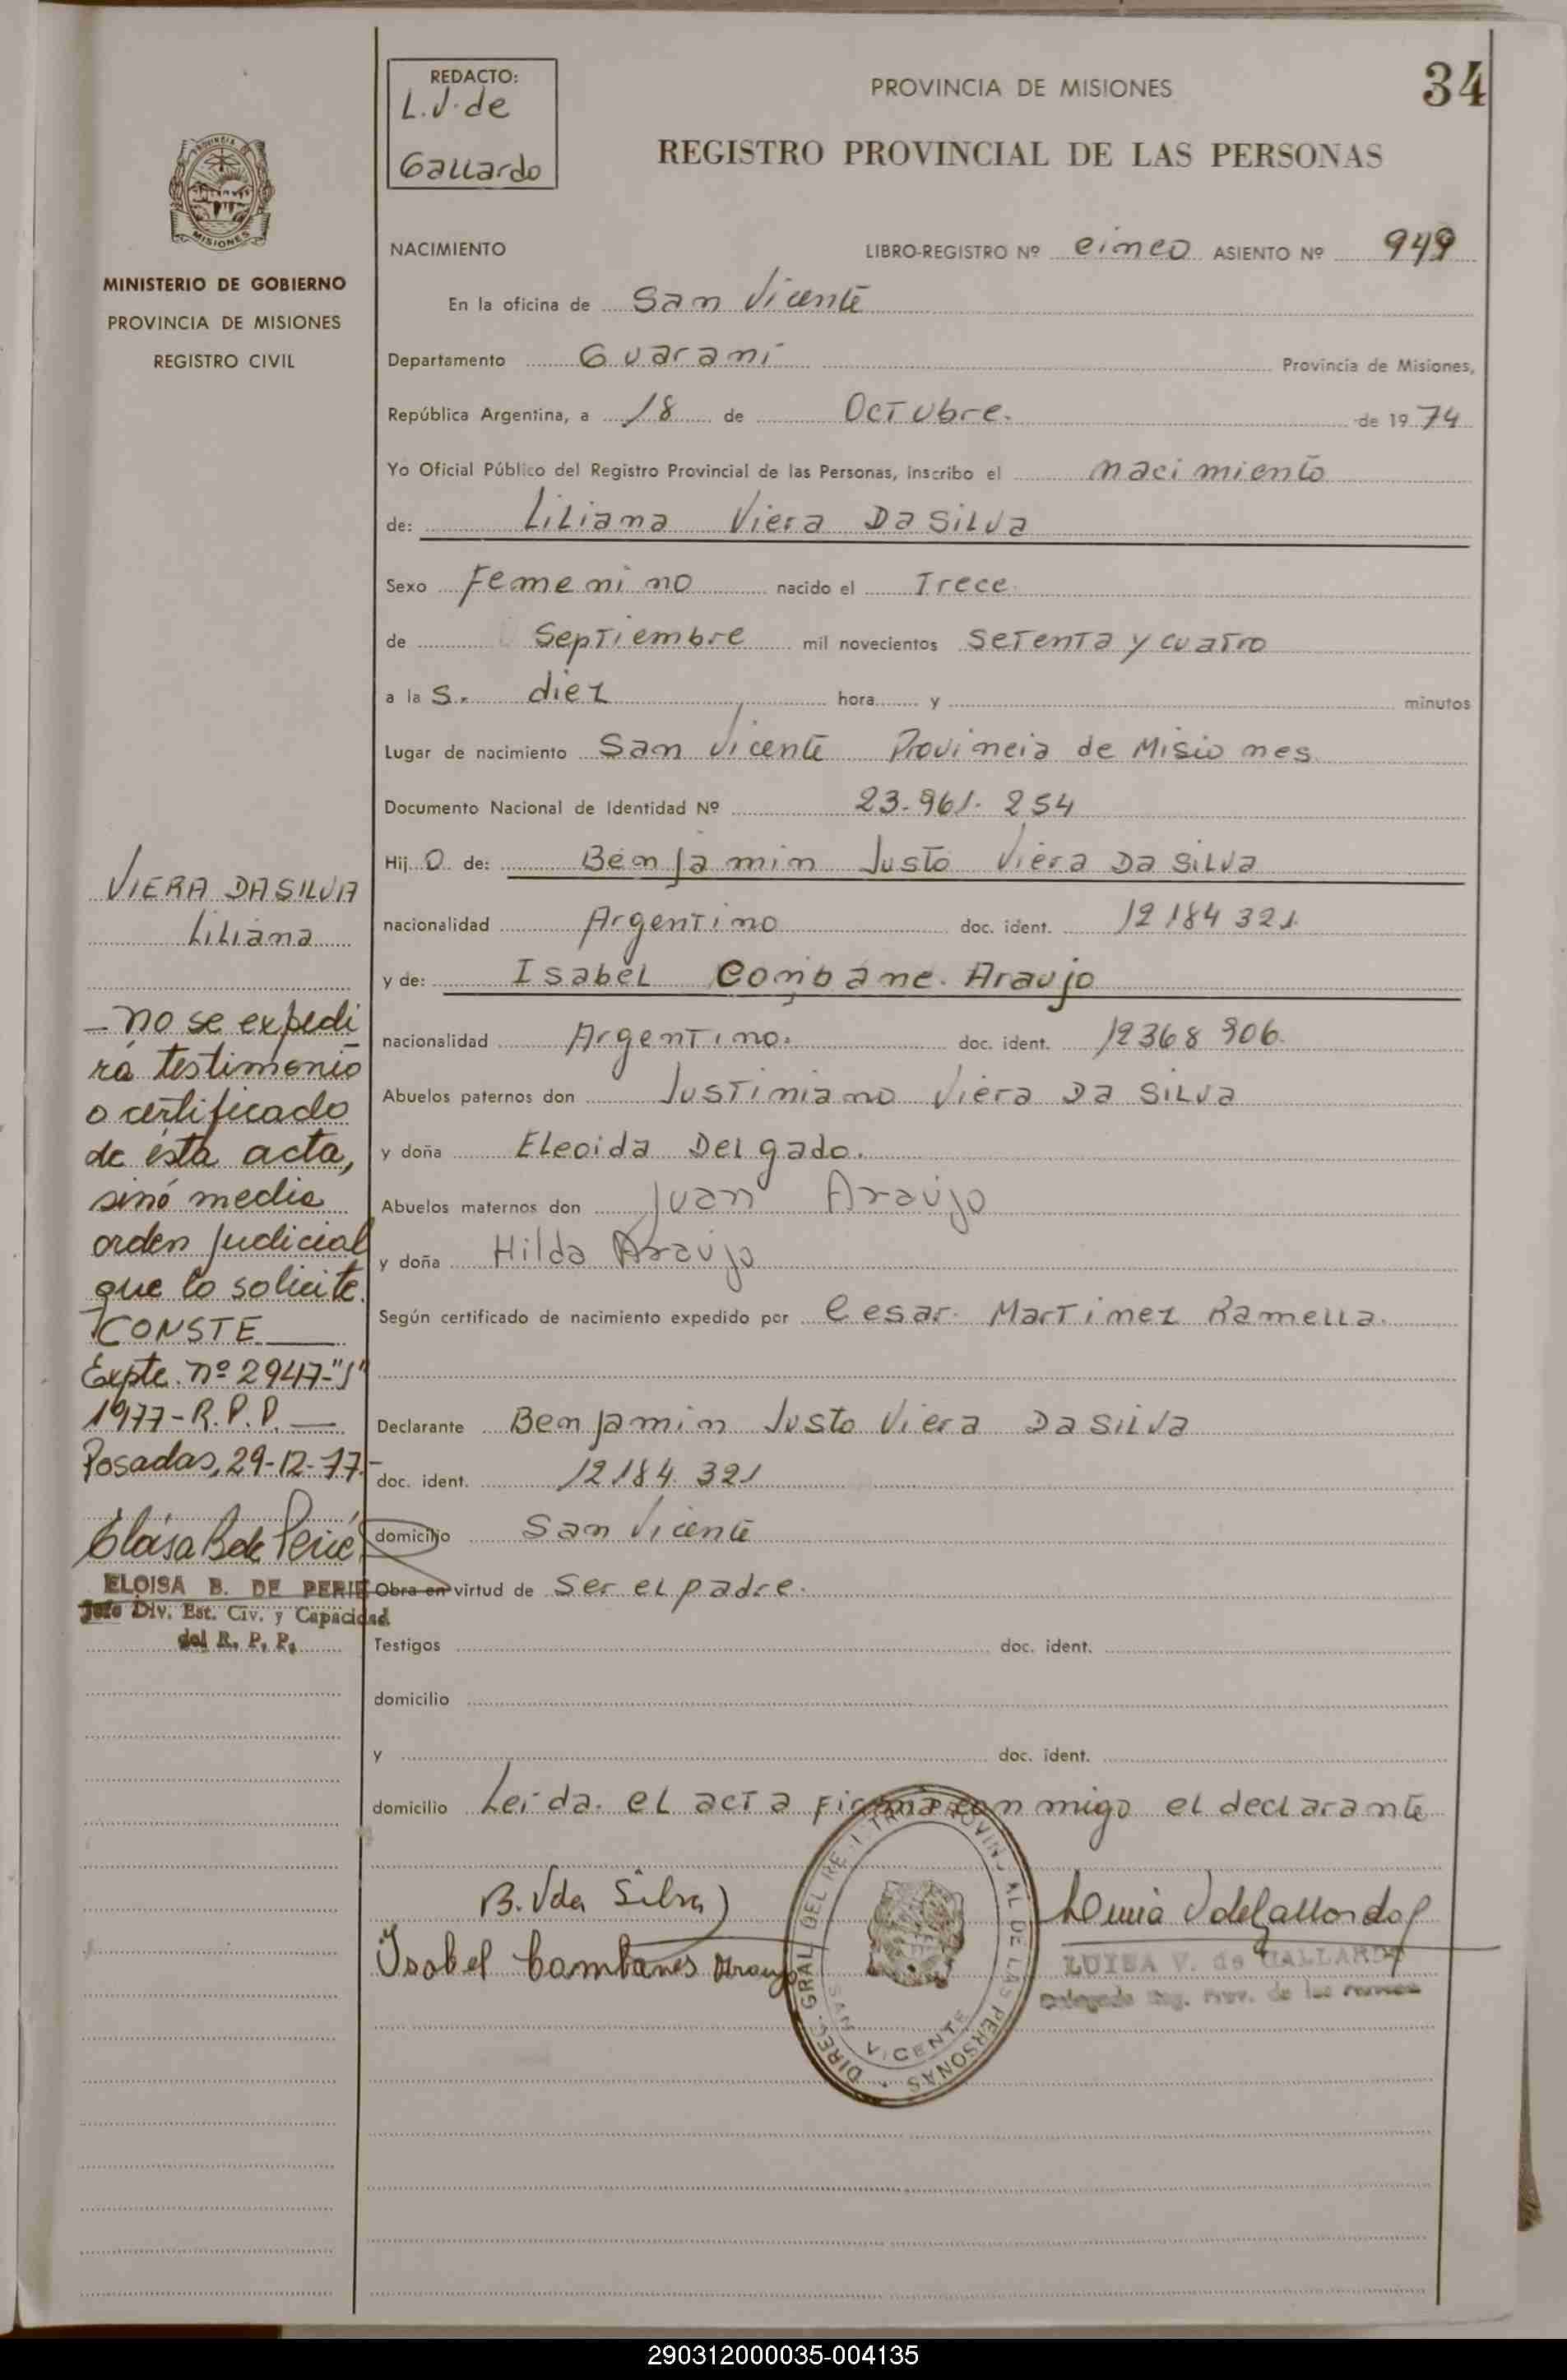 REDACTO:
L.V. de
Gallardo
PROVINCIA DE MISIONES
34
REGISTRO PROVINCIAL DE LAS PERSONAS
MISIONES
MINISTERIO DE GOBIERNO
PROVINCIA DE MISIONES
REGISTRO CIVIL
NACIMIENTO LIBRO-REGISTRO Nº cinco ASIENTO Nº 949
En la oficina de San Vicente
Departamento Guaraní Provincia de Misiones,
República Argentina, a 18 de Octubre. de 1974
Yo Oficial Público del Registro Provincial de las Personas, inscribo el nacimiento
de: Liliana Viera Da Silva
Sexo Femenino nacido el Trece
de Septiembre mil novecientos Setenta y cuatro
a las. diez hora y minutos
Lugar de nacimiento San Vicente Provincia de Misiones
Documento Nacional de Identidad Nº 23.961.254
Hijo de: Benjamin Justo Viera Da Silva
nacionalidad Argentino doc. ident. 12184321
y de: Isabel Combane. Araujo
nacionalidad Argentino. doc. ident. 12368906
Abuelos paternos don Justiniano Viera Da Silva
y doña Eleoida Delgado.
Abuelos maternos don Juan Araujo
y doña Hilda Araujo
Según certificado de nacimiento expedido por Cesar. Martinez Ramella.
Declarante Benjamin Justo Viera Da Silva
doc. ident. 12184.321
domicilio San Vicente
Obra en virtud de Ser el padre.
Testigos doc. ident.
domicilio
y doc. ident.
domicilio Leida. el acta firma conmigo el declarante
VIERA DA SILVA
Liliana
- no se expedi
rá testimonio
o certificado
de ésta acta,
sinó media
orden judicial
que lo solicite.
CONSTE
Expte. nº 2947-"S"
1977-R.P.P.
Posadas, 29-12-77.-
Eloisa B de Perié
ELOISA B. DE PERIE
Jefe Div. Est. Civ. y Capacidad
del R. P. P.
B. Vda Silva
Isabel Cambanes Araujo
DIREC. GRAL. DEL REGISTRO PROVINCIAL DE LAS PERSONAS
SAN VICENTE
LUISA V. de GALLARDO
290312000035-004135